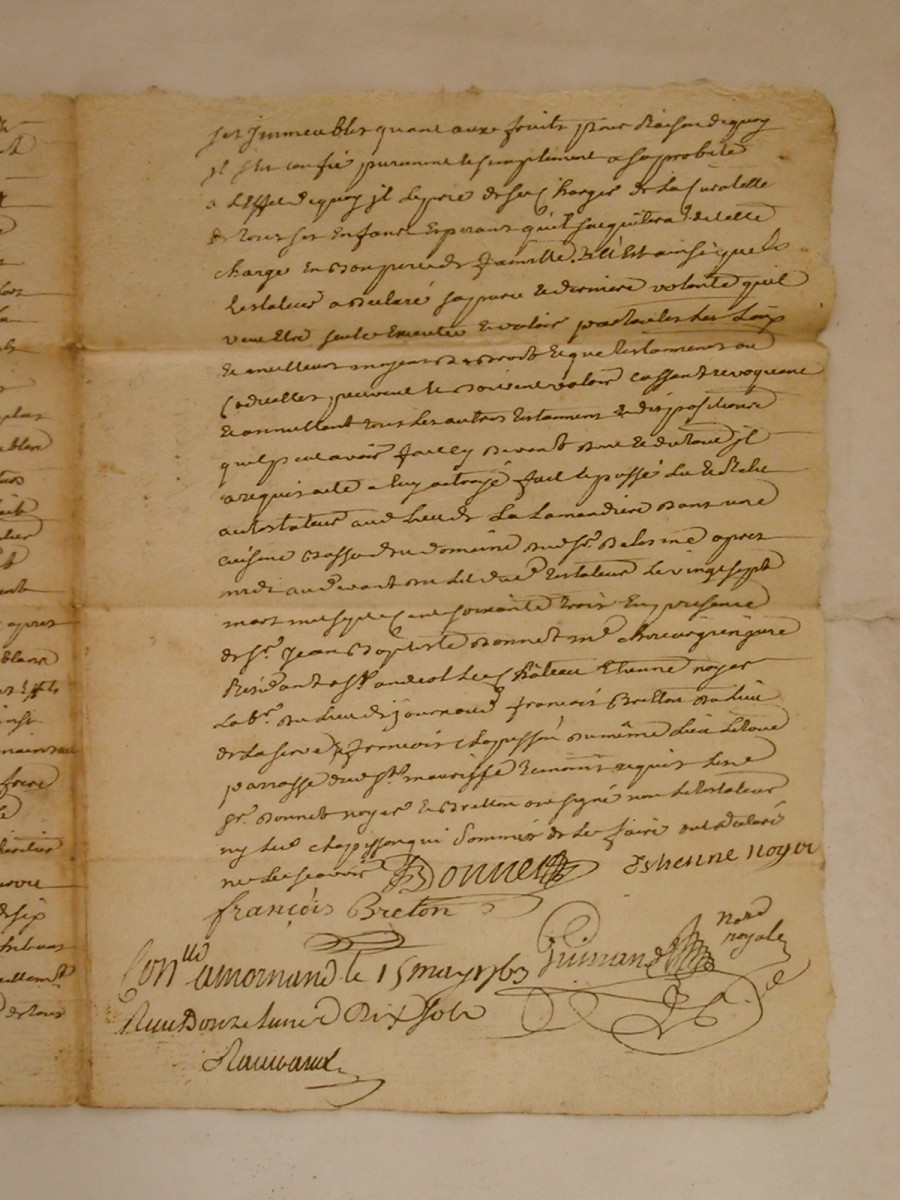 ses Immeubles quant aux fruits pour Raison dequoy
jl s'en confie purement et simplement a sa probité
a L'effet dequoy jl Le prie de se Charger de La Curatelle
de tous ses Enfans Esperant qu'il s'acquitera de cette
charge En bon pere de famille. Et C'Est ainsi que le
testateur a declaré sa pure Et derniere volonté qu'il
veut Etre seule Executée Et valoir par toutes Les Loix
Et meilleurs moyens de droit Et que testaments ou
Codicilles peuvent Et doivent valoir Cassant revoquant
Et annullant tous Les autres testaments Et dispositions
qu'il peut avoir fait Cy devant dont Et du tout jl
a requis acte a Luy octroyé fait Et passé Lu Et Relu
au testateur aud. Lieu de La Lamandiere dans une
cuisine basse du domaine dud. Sr. apres
midi au devant du Lit dud. testateur Le vingt sept
mars mil sept Cent soixante trois En presence
de Sr. Jean Baptiste Bonnet Me. chirurgien juré
Residant a St. andeol Le Château Etienne noyer
Lab.r du Lieu de françois Bretton du Lieu
de La et françois chapusson du même Lieu Et tous
paroisse dud. St. maurisse Temoins requis Les
Sr. Bonnet noyer Et Bretton ont signé non Le testateur
ny Led. chapusson qui Sommés de Le faire ont declaré
ne Le sçavoir Bonnet Estienne noyer
françois Breton
Guimand nore royale
Con.lle a mornand le 15 may 1763
Reçu Douze Livres Dix sols